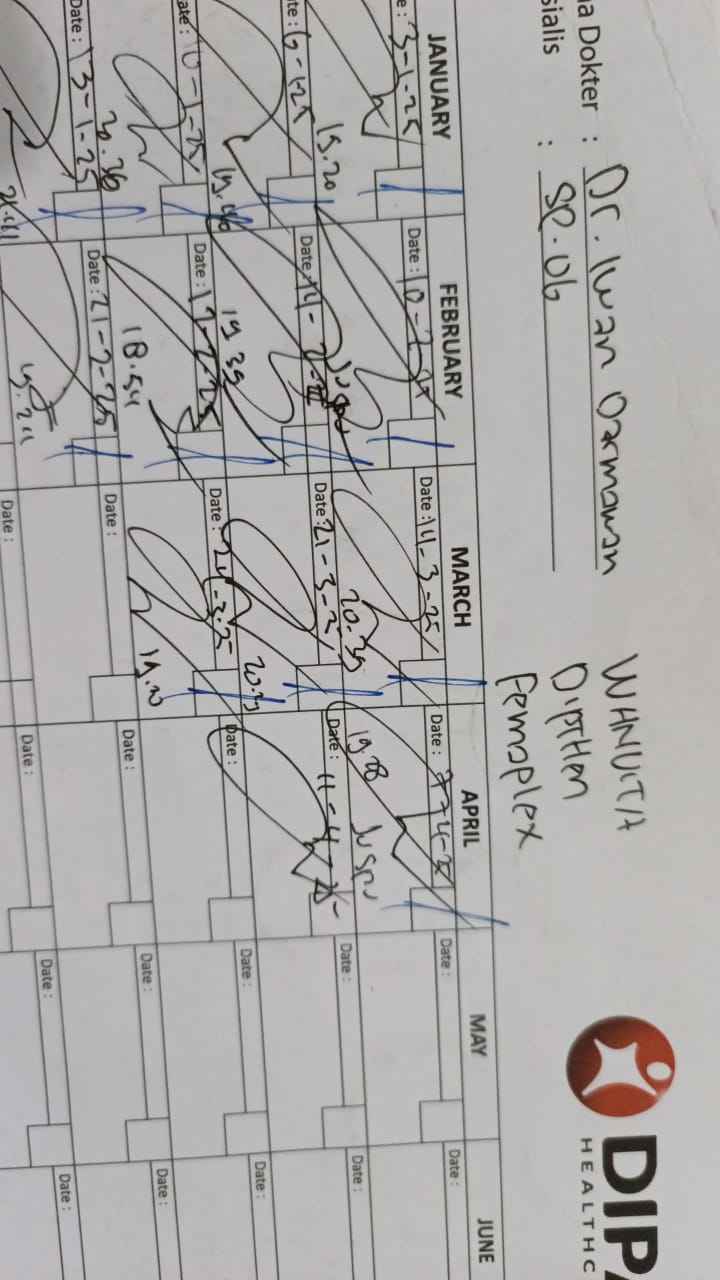 na Dokter : Dr. Iwan Darmawan
sialis : SP. OG
WANVITA
Dipthen
Femoplex
DIPA
HEALTHC
JANUARY FEBRUARY MARCH APRIL MAY JUNE
e : 3-1-25 Date : 10-2-25 Date : 14-3-25 Date : 7-4-25 Date : Date :
19.20 20.39 19.08
te : 6-1-25 Date : 14-2- Date : 21-3-25 Date : 11-4-25 Date : Date :
19.40 19.39 20.39
ate : 10-1-25 Date : 17-2-25 Date : 24-3-25 Date : Date : Date :
20.36 18.54 19.20
Date : 13-1-25 Date : 21-2-25 Date : Date : Date : Date :
Date : Date : Date : Date :